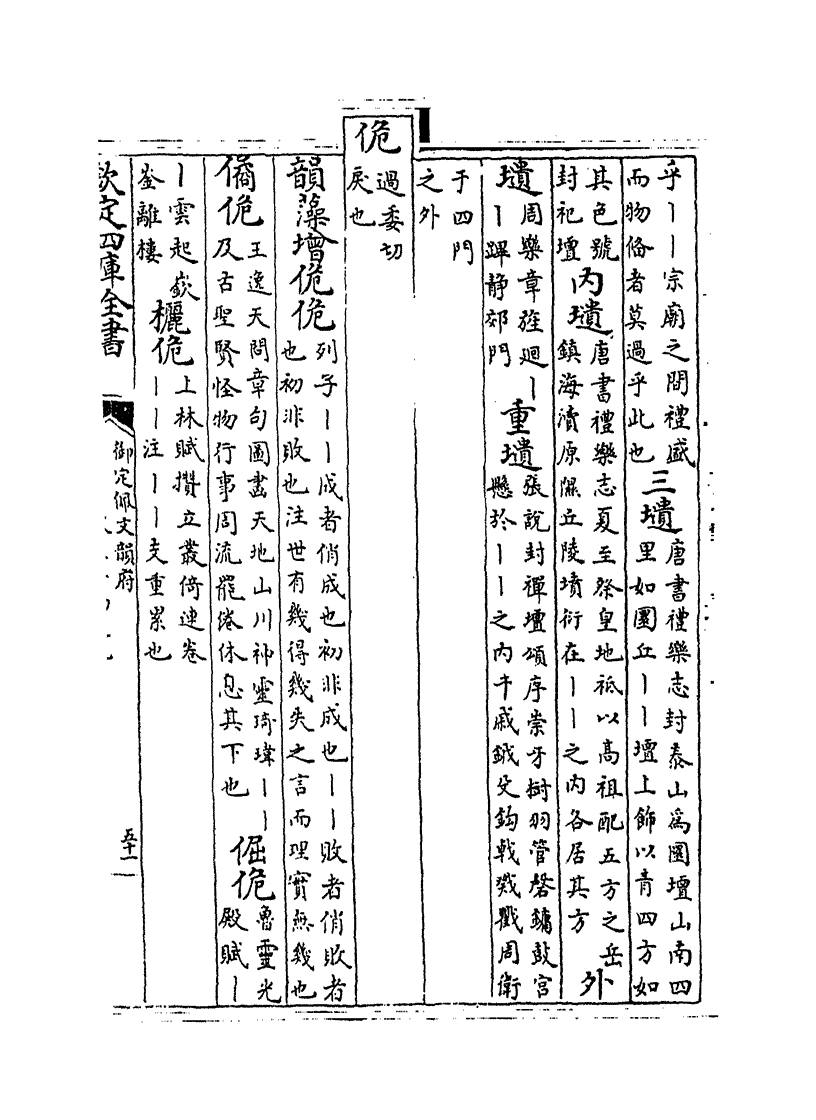 乎丨丨宗廟之間禮盛
而物俻者莫過乎此也
三壝
唐書禮樂志封泰山為圜壇山南四
里如圜丘丨丨壇上飾以青四方如
其色號
封祀壇
內壝
唐書禮樂志夏至祭皇地祇以高祖配五方之岳
鎮海瀆原隰丘陵墳衍在丨丨之内各居其方
外
壝
周樂章旌迴丨
丨蹕静郊門
重壝
張說封禪壇頌序崇牙樹羽管磬鏞鼓宫
懸於丨丨之内干戚鉞殳鈎戟戣戵周衛
于四門
之外
佹
過委切
戾也
韻藻增佹佹
列子丨丨成者俏成也初非成也丨丨敗者俏敗者
也初非敗也注世有幾得幾失之言而理實無幾也
僪佹
王逸天問章句圖畫天地山川神靈琦瑋丨丨
及古聖賢怪物行事周流罷倦休息其下也
倔佹
魯靈光
殿賦丨
丨雲起嶔
崟離樓
欐佹
上林賦攢立叢倚連卷
丨丨注丨丨支重累也
欽定四庫全書
御定佩文韻府
五十一